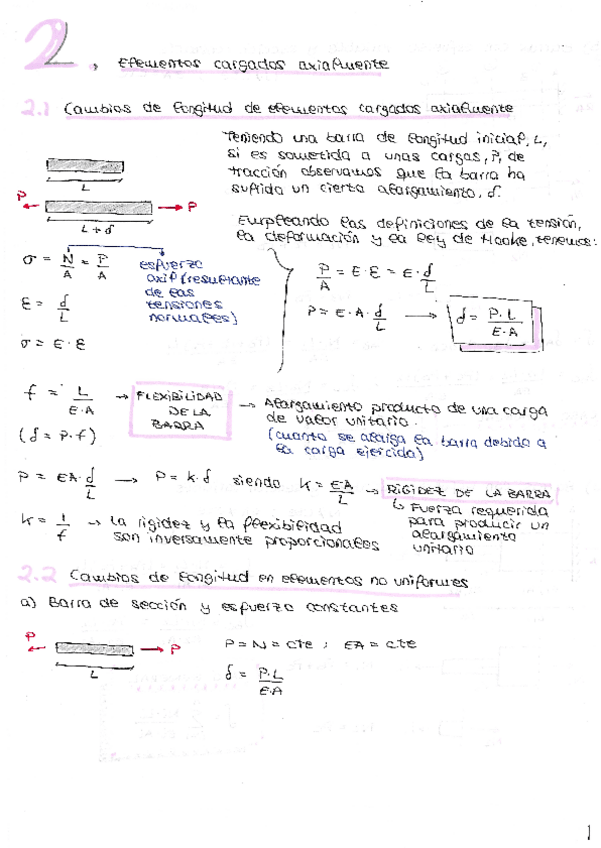 2. Elementos cargados axialmente
2.1 Cambios de longitud de elementos cargados axialmente
Teniendo una barra de longitud inicial, L,
si es sometida a unas cargas, P, de
tracción observamos que la barra ha
sufrido un cierto alargamiento, δ.
L
P
P
L + δ
Empleando las definiciones de la tensión,
la deformación y la ley de Hooke, tenemos:
σ = N/A = P/A
esfuerzo
axil (resultante
de las
tensiones
normales)
ε = δ/L
σ = E · ε
P/A = E · ε = E · δ/L
P = E · A · δ/L → δ = P·L/E·A
f = L/E·A → FLEXIBILIDAD DE LA BARRA → Alargamiento producto de una carga
de valor unitario.
(δ = P · f)
(cuanto se alarga la barra debido a
la carga ejercida)
P = EA·δ/L → P = k · δ siendo k = EA/L → RIGIDEZ DE LA BARRA
↳ Fuerza requerida
para producir un
alargamiento
unitario
k = 1/f → La rigidez y la flexibilidad
son inversamente proporcionales
2.2 Cambios de longitud en elementos no uniformes
a) Barra de sección y esfuerzo constantes
P
P
L
P = N = cte ; EA = cte
δ = P·L/E·A
1